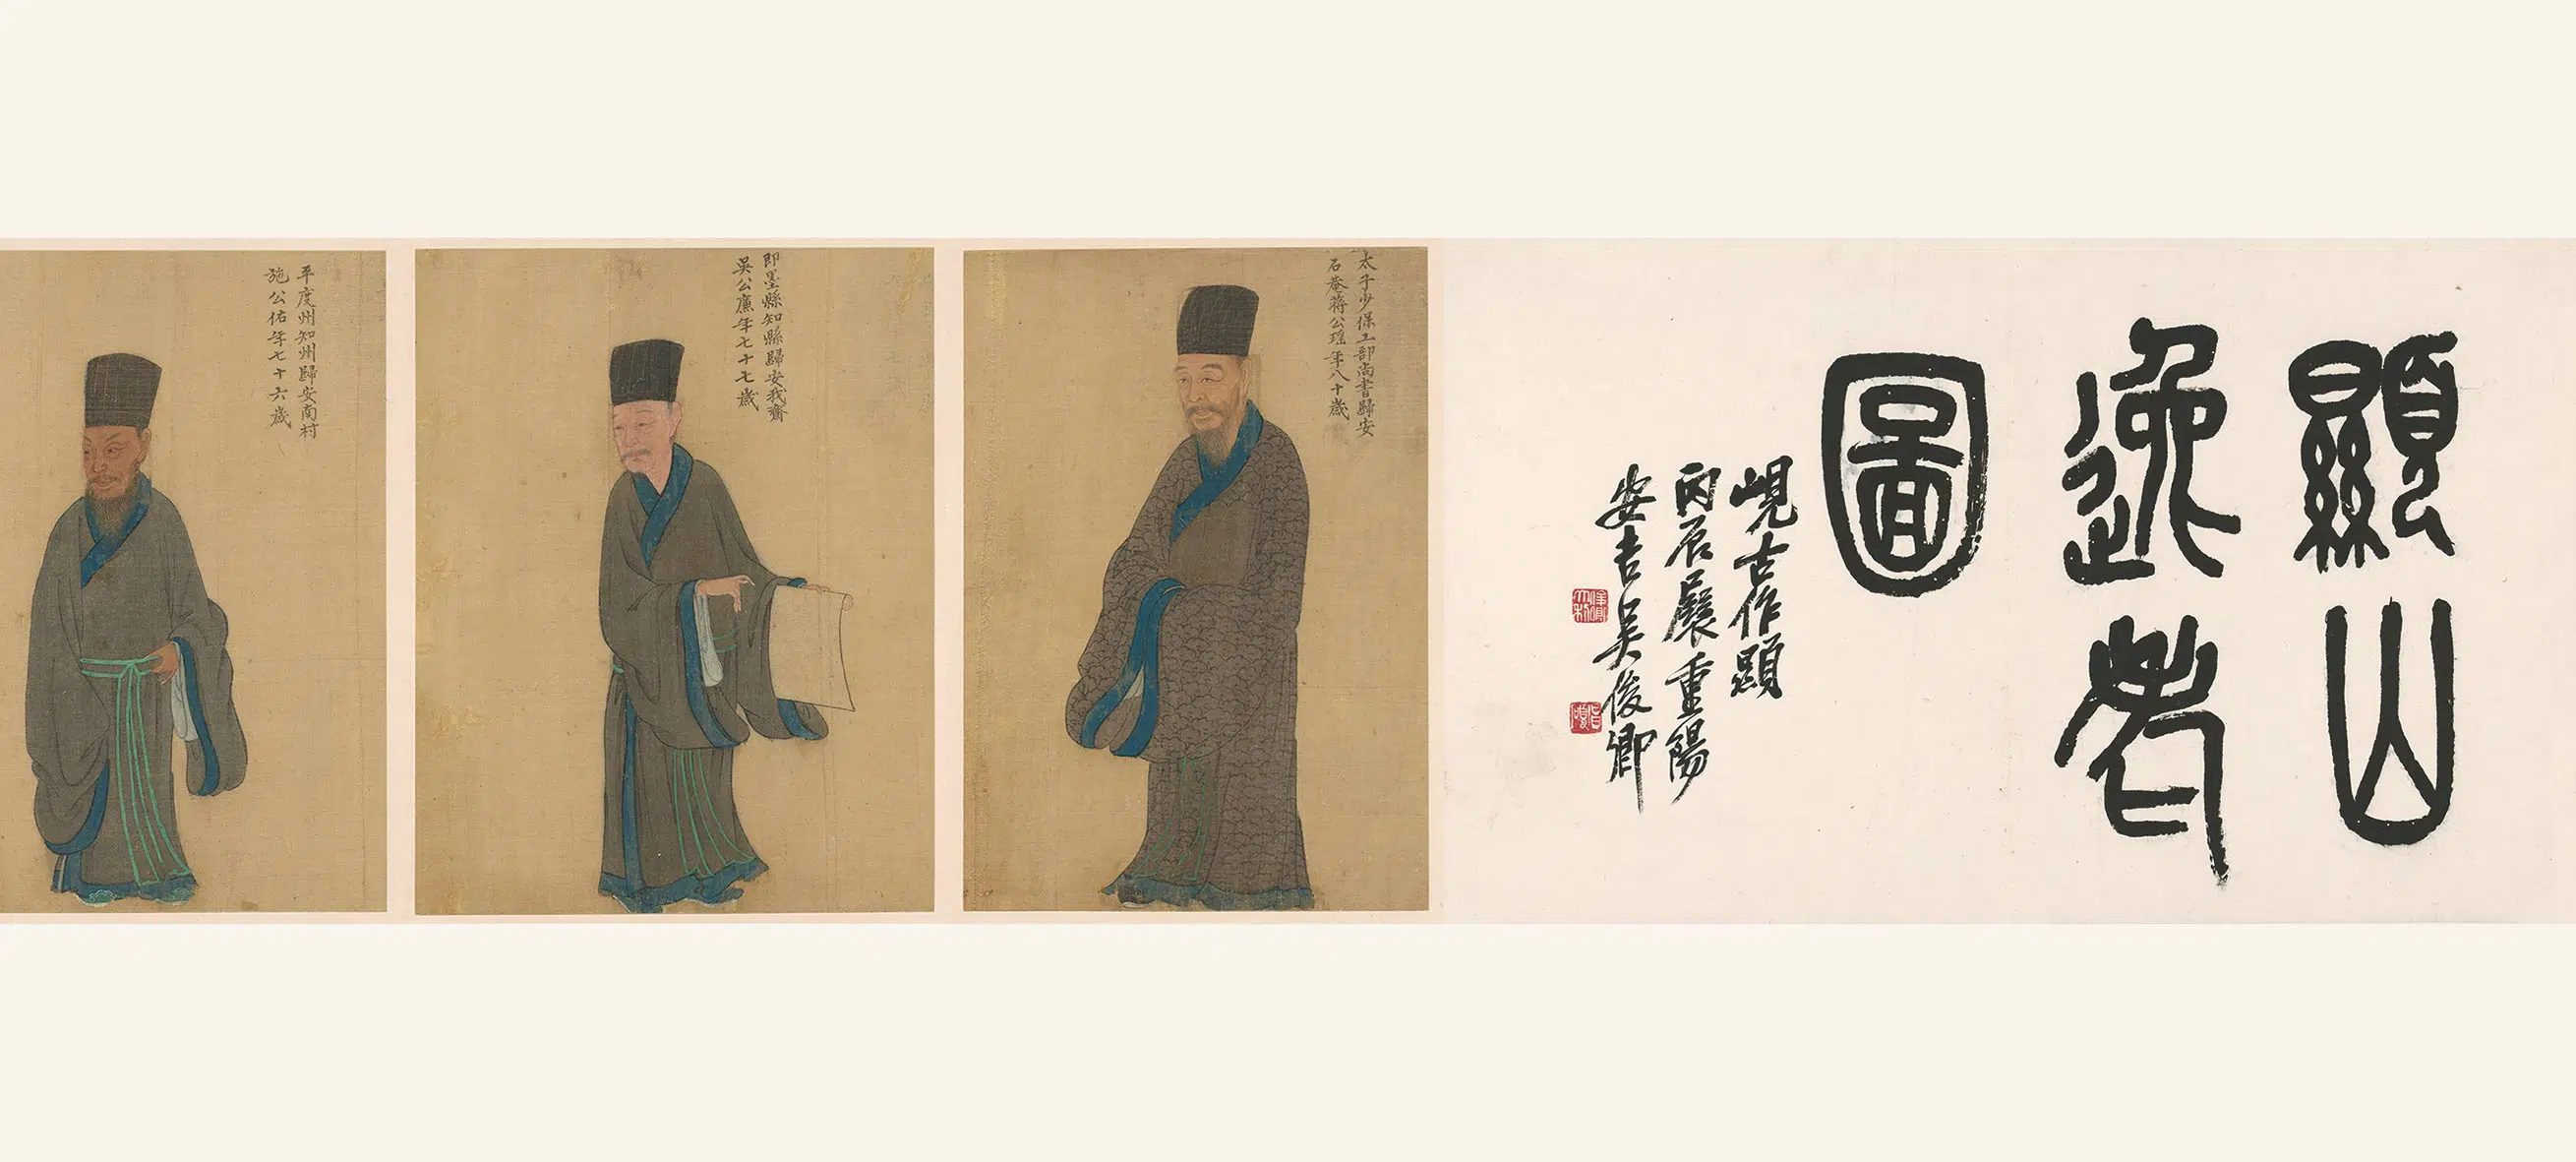 顯山
逸老
圖
峴古作顯
丙辰展重陽
安吉吳俊卿
太子少保工部尚書歸安
石菴蔣公瑤年八十歲
即墨縣知縣歸安我齋
吳公廉年七十七歲
平度州知州歸安南村
施公佑年七十六歲